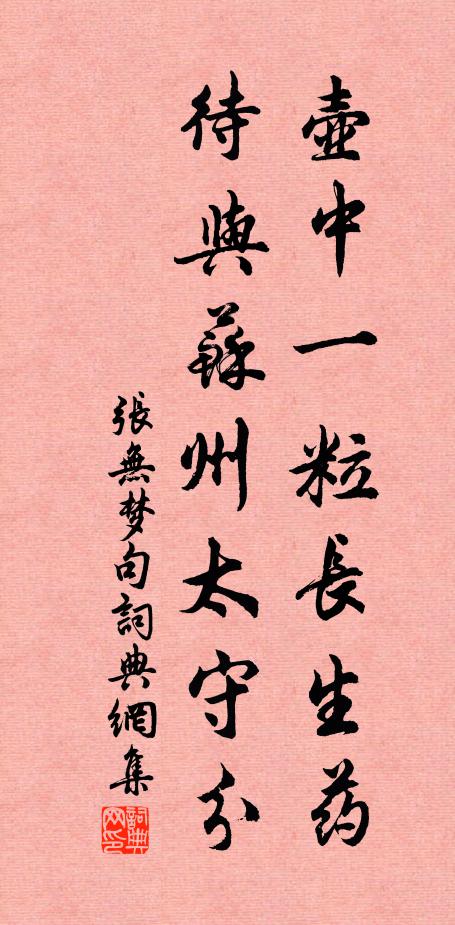 壺中一粒長生药
待與蘇州太守分
張無梦句詞典網集
詞典网印